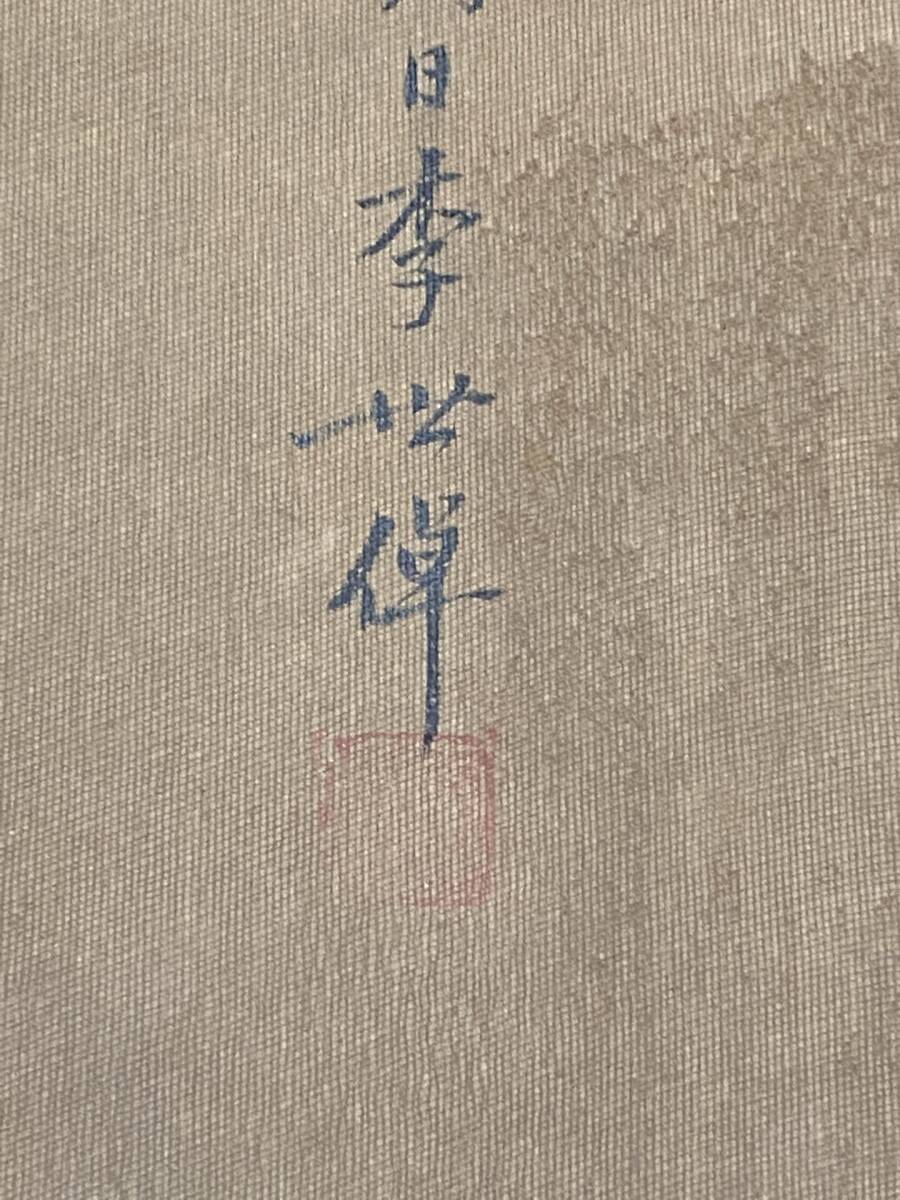 日李世倬